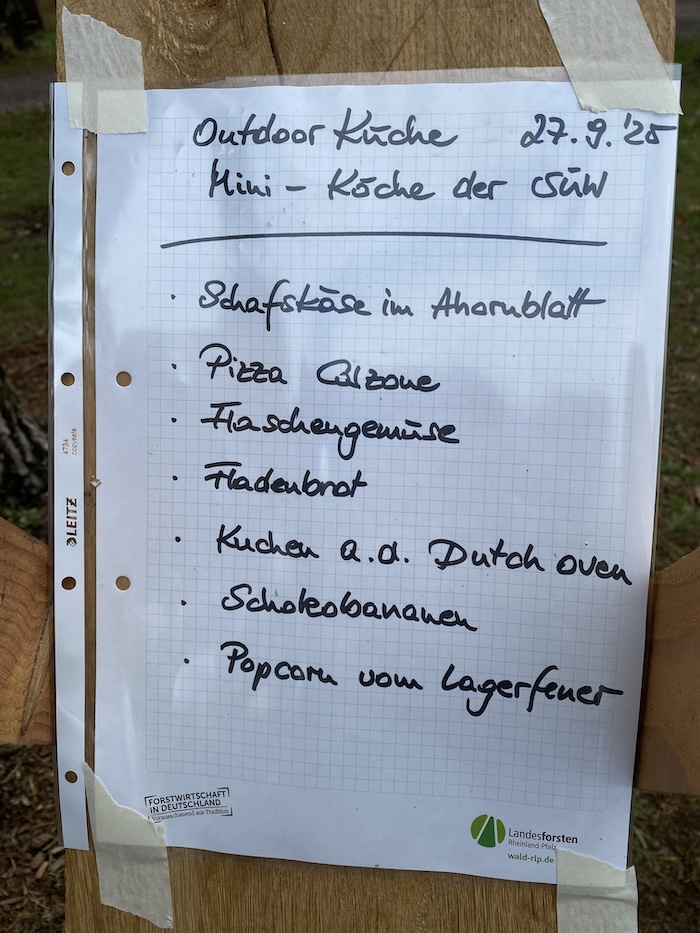 Outdoor Küche 27.9.'25
Mini - Köche der SÜW
· Schafskäse im Ahornblatt
· Pizza Calzone
· Flaschengemüse
· Fladenbrot
· Kuchen a.d. Dutch oven
· Schokobananen
· Popcorn vom Lagerfeuer
4734
copysafe
LEITZ
FORSTWIRTSCHAFT
IN DEUTSCHLAND
Vorausschauend aus Tradition
Landesforsten
Rheinland-Pfalz
wald-rlp.de